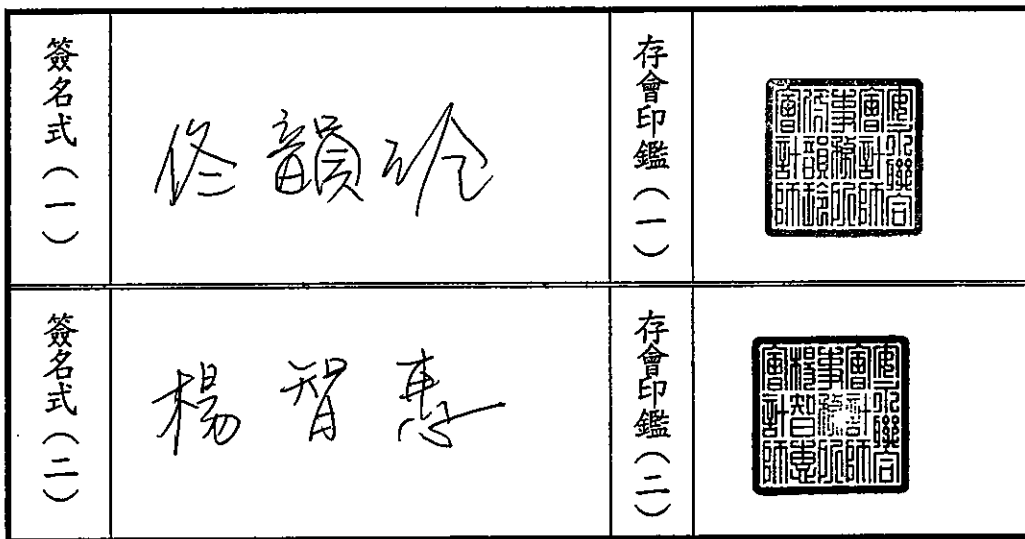 簽名式(一)
佟韻玲
存會印鑑(一)
安永聯合
會計師
事務所
佟韻玲
會計師
簽名式(二)
楊智惠
存會印鑑(二)
安永聯合
會計師
事務所
楊智惠
會計師